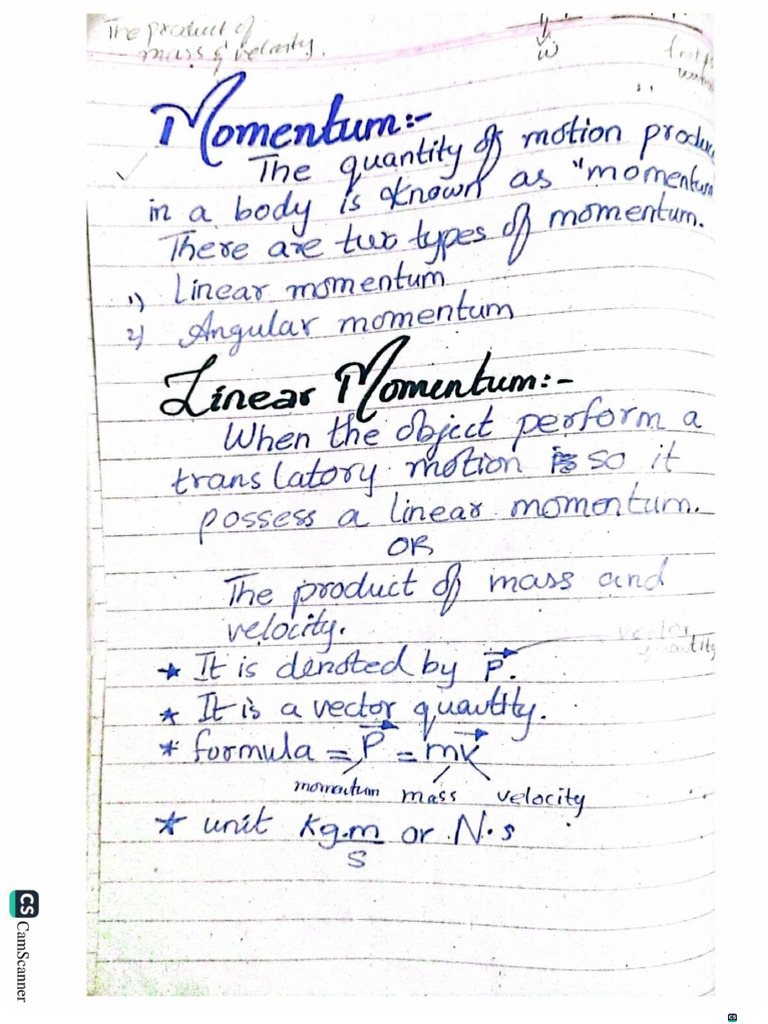 The product of
mass & velocity.
w
Momentum:-
The quantity of motion produc
in a body is known as "momentum
There are two types of momentum.
1) Linear momentum
2) Angular momentum
Linear Momentum:-
When the object perform a
translatory motion is so it
possess a linear momentum.
OR
The product of mass and
velocity.
vector
quantity
* It is denoted by P.
* It is a vector quantity.
* formula = P = mv
momentum mass velocity
* unit kg.m or N.s
s
CS CamScanner
CS